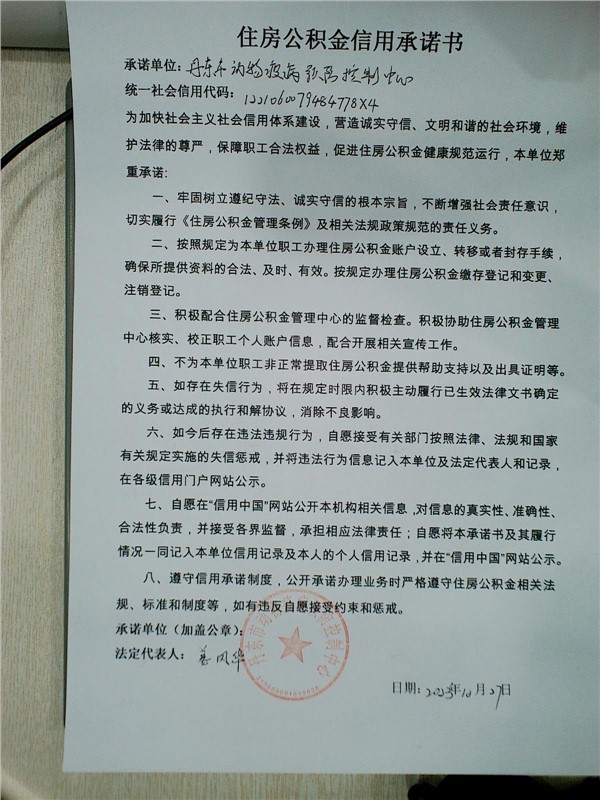 住房公积金信用承诺书
承诺单位：丹东市动物疫病预防控制中心
统一社会信用代码：12210600794847​78X4
为加快社会主义社会信用体系建设，营造诚实守信、文明和谐的社会环境，维
护法律的尊严，保障职工合法权益，促进住房公积金健康规范运行，本单位郑
重承诺:
一、牢固树立遵纪守法、诚实守信的根本宗旨，不断增强社会责任意识，
切实履行《住房公积金管理条例》及相关法规政策规范的责任义务。
二、按照规定为本单位职工办理住房公积金账户设立、转移或者封存手续，
确保所提供资料的合法、及时、有效。按规定办理住房公积金缴存登记和变更、
注销登记。
三、积极配合住房公积金管理中心的监督检查。积极协助住房公积金管理
中心核实、校正职工个人账户信息，配合开展相关宣传工作。
四、不为本单位职工非正常提取住房公积金提供帮助支持以及出具证明等。
五、如存在失信行为，将在规定时限内积极主动履行已生效法律文书确定
的义务或达成的执行和解协议，消除不良影响。
六、如今后存在违法违规行为，自愿接受有关部门按照法律、法规和国家
有关规定实施的失信惩戒，并将违法行为信息记入本单位及法定代表人和记录，
在各级信用门户网站公示。
七、自愿在“信用中国”网站公开本机构相关信息，对信息的真实性、准确性、
合法性负责，并接受各界监督，承担相应法律责任；自愿将本承诺书及其履行
情况一同记入本单位信用记录及本人的个人信用记录，并在“信用中国”网站公示。
八、遵守信用承诺制度，公开承诺办理业务时严格遵守住房公积金相关法
规、标准和制度等，如有违反自愿接受约束和惩戒。
承诺单位（加盖公章）：
法定代表人：风华
日期：2023年10月27日